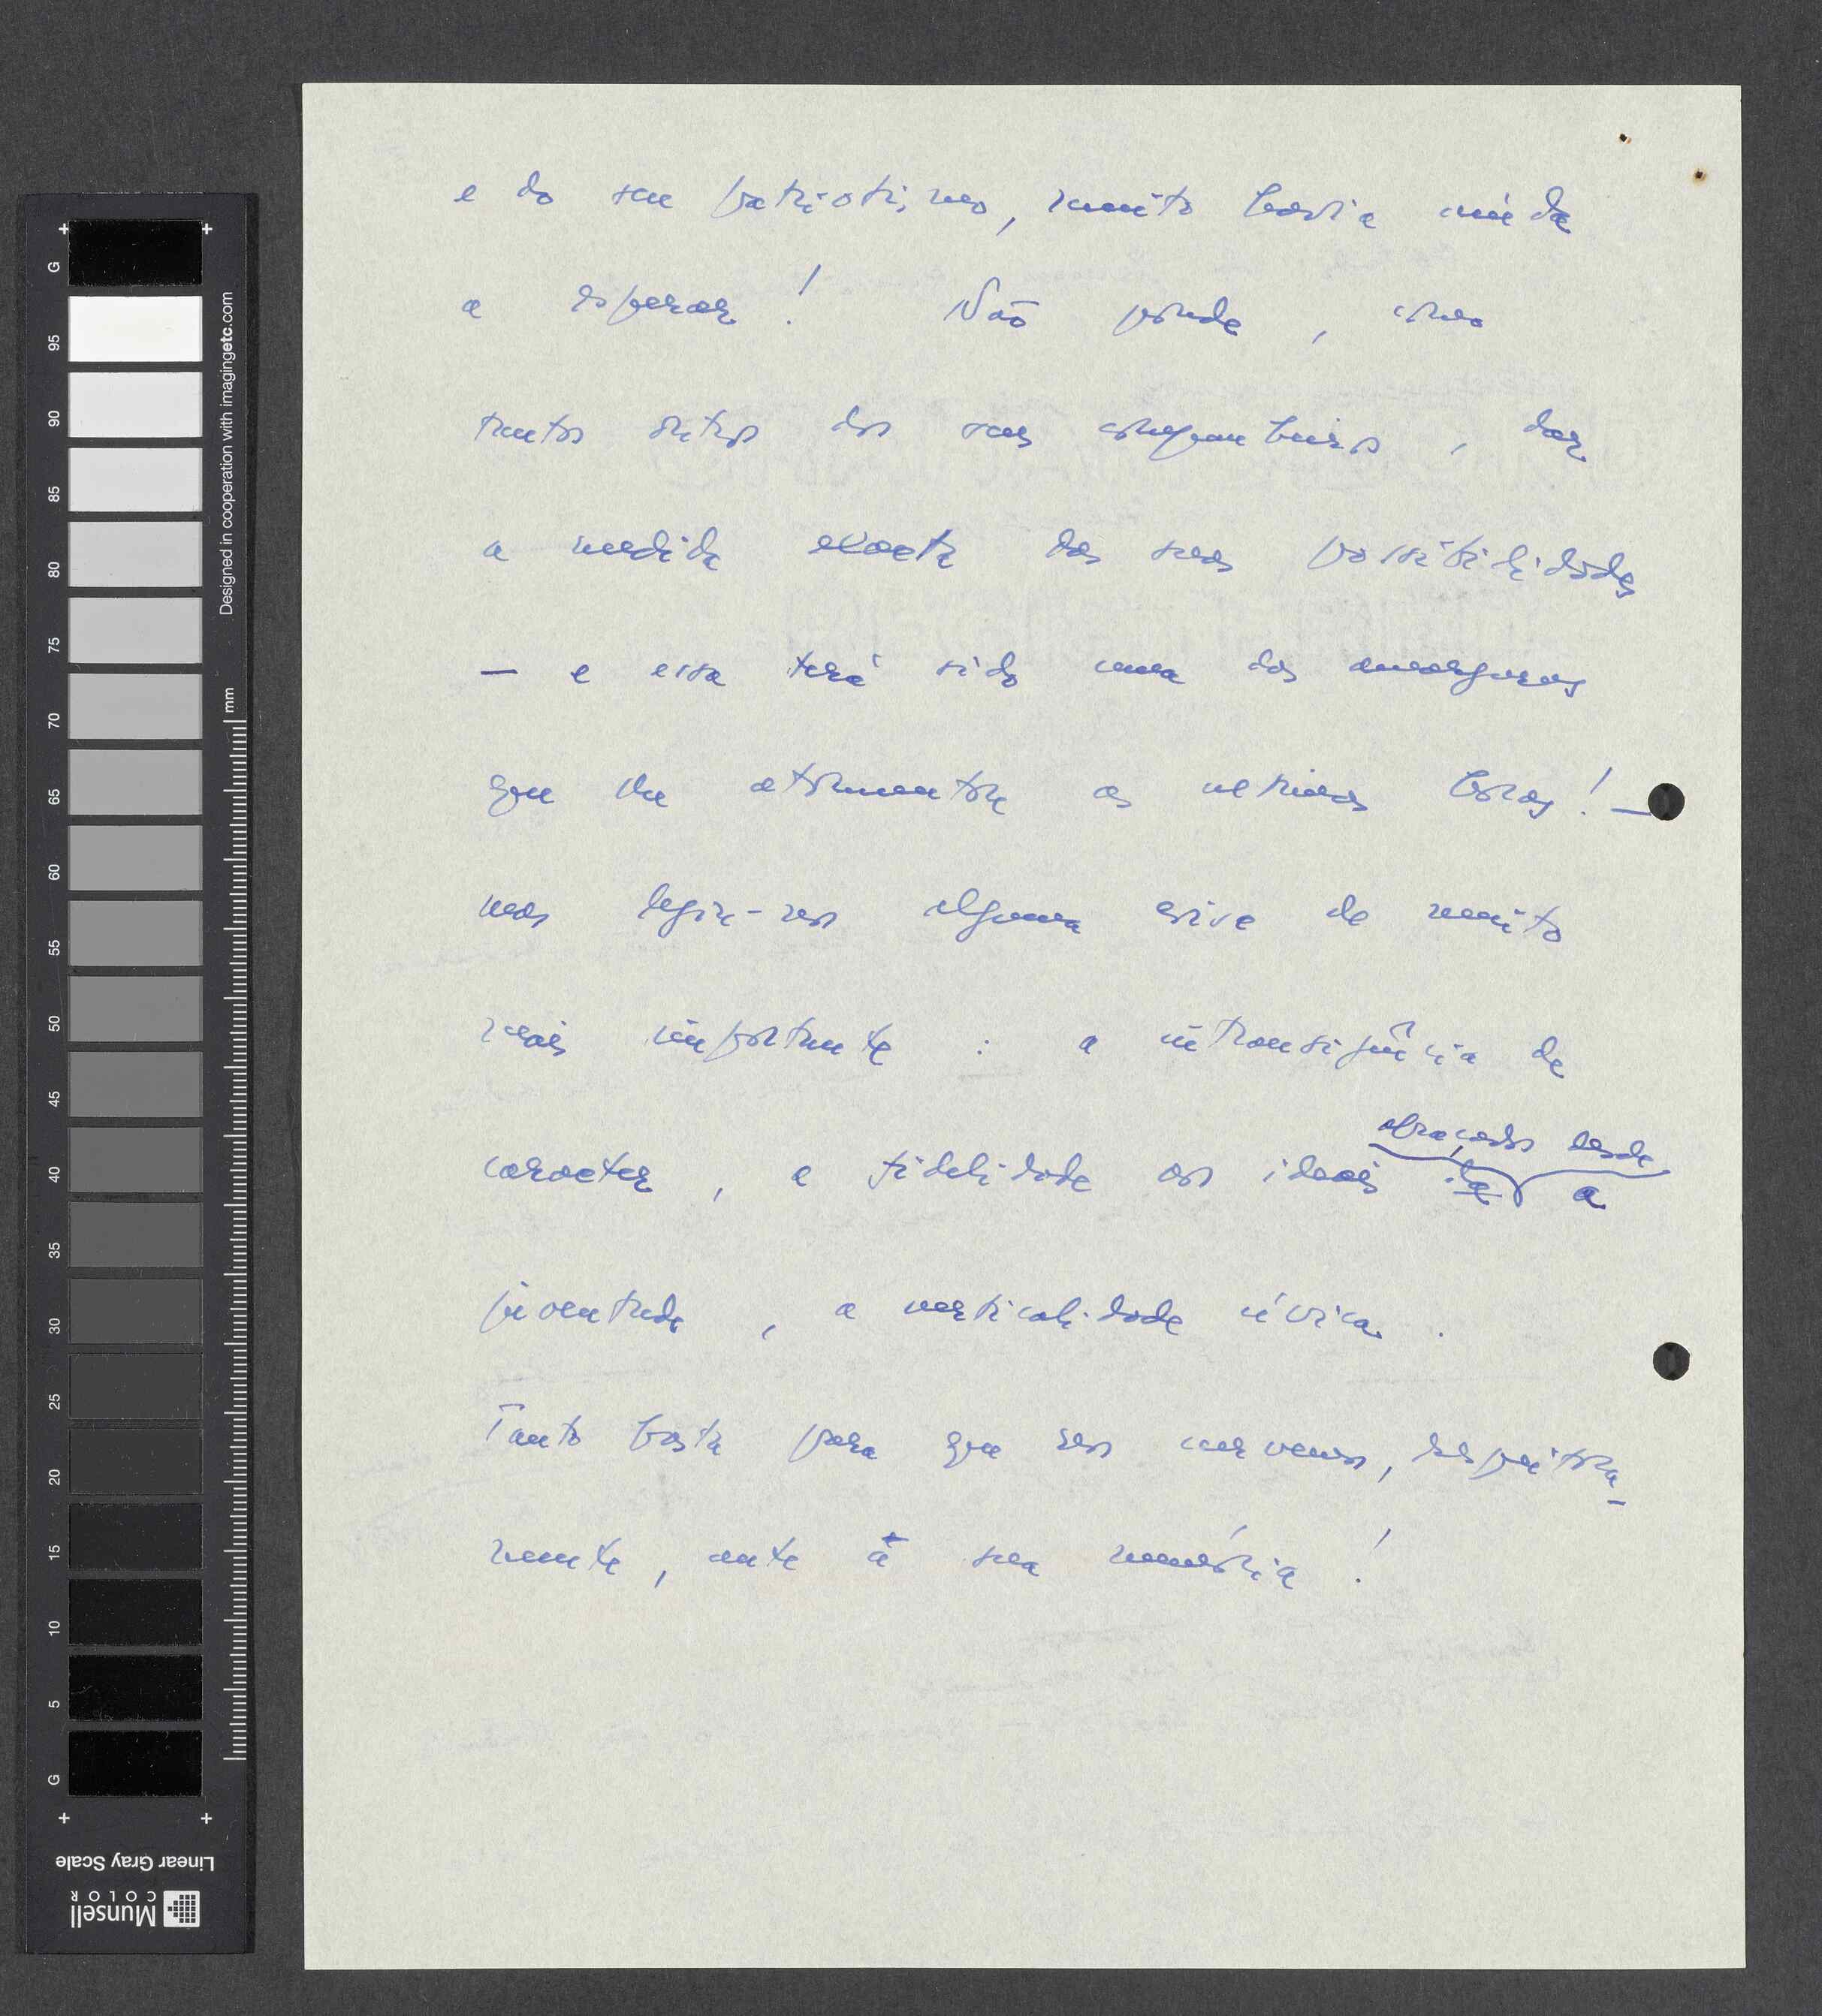 e do seu patriotismo, muito havia ainda
a esperar! Não poude, como
tantos outros dos seus companheiros, dar
a medida exacta das suas possibilidades
— e essa terá sido uma das amarguras
que lhe atormentou as ultimas horas! —
mas legou-nos alguma coisa de muito
mais importante: a intransigência de
abraçados desde
caracter, a fidelidade aos ideais da a
juventude, a verticalidade cívica.
Tanto basta para que nos curvemos, respeitosa-
mente, ante a sua memória!
G
95
90
85
80
75
70
65
60
55
50
45
40
35
30
25
20
15
10
5
G
mm
Designed in cooperation with imagingetc.com
Linear Gray Scale
Munsell
COLOR